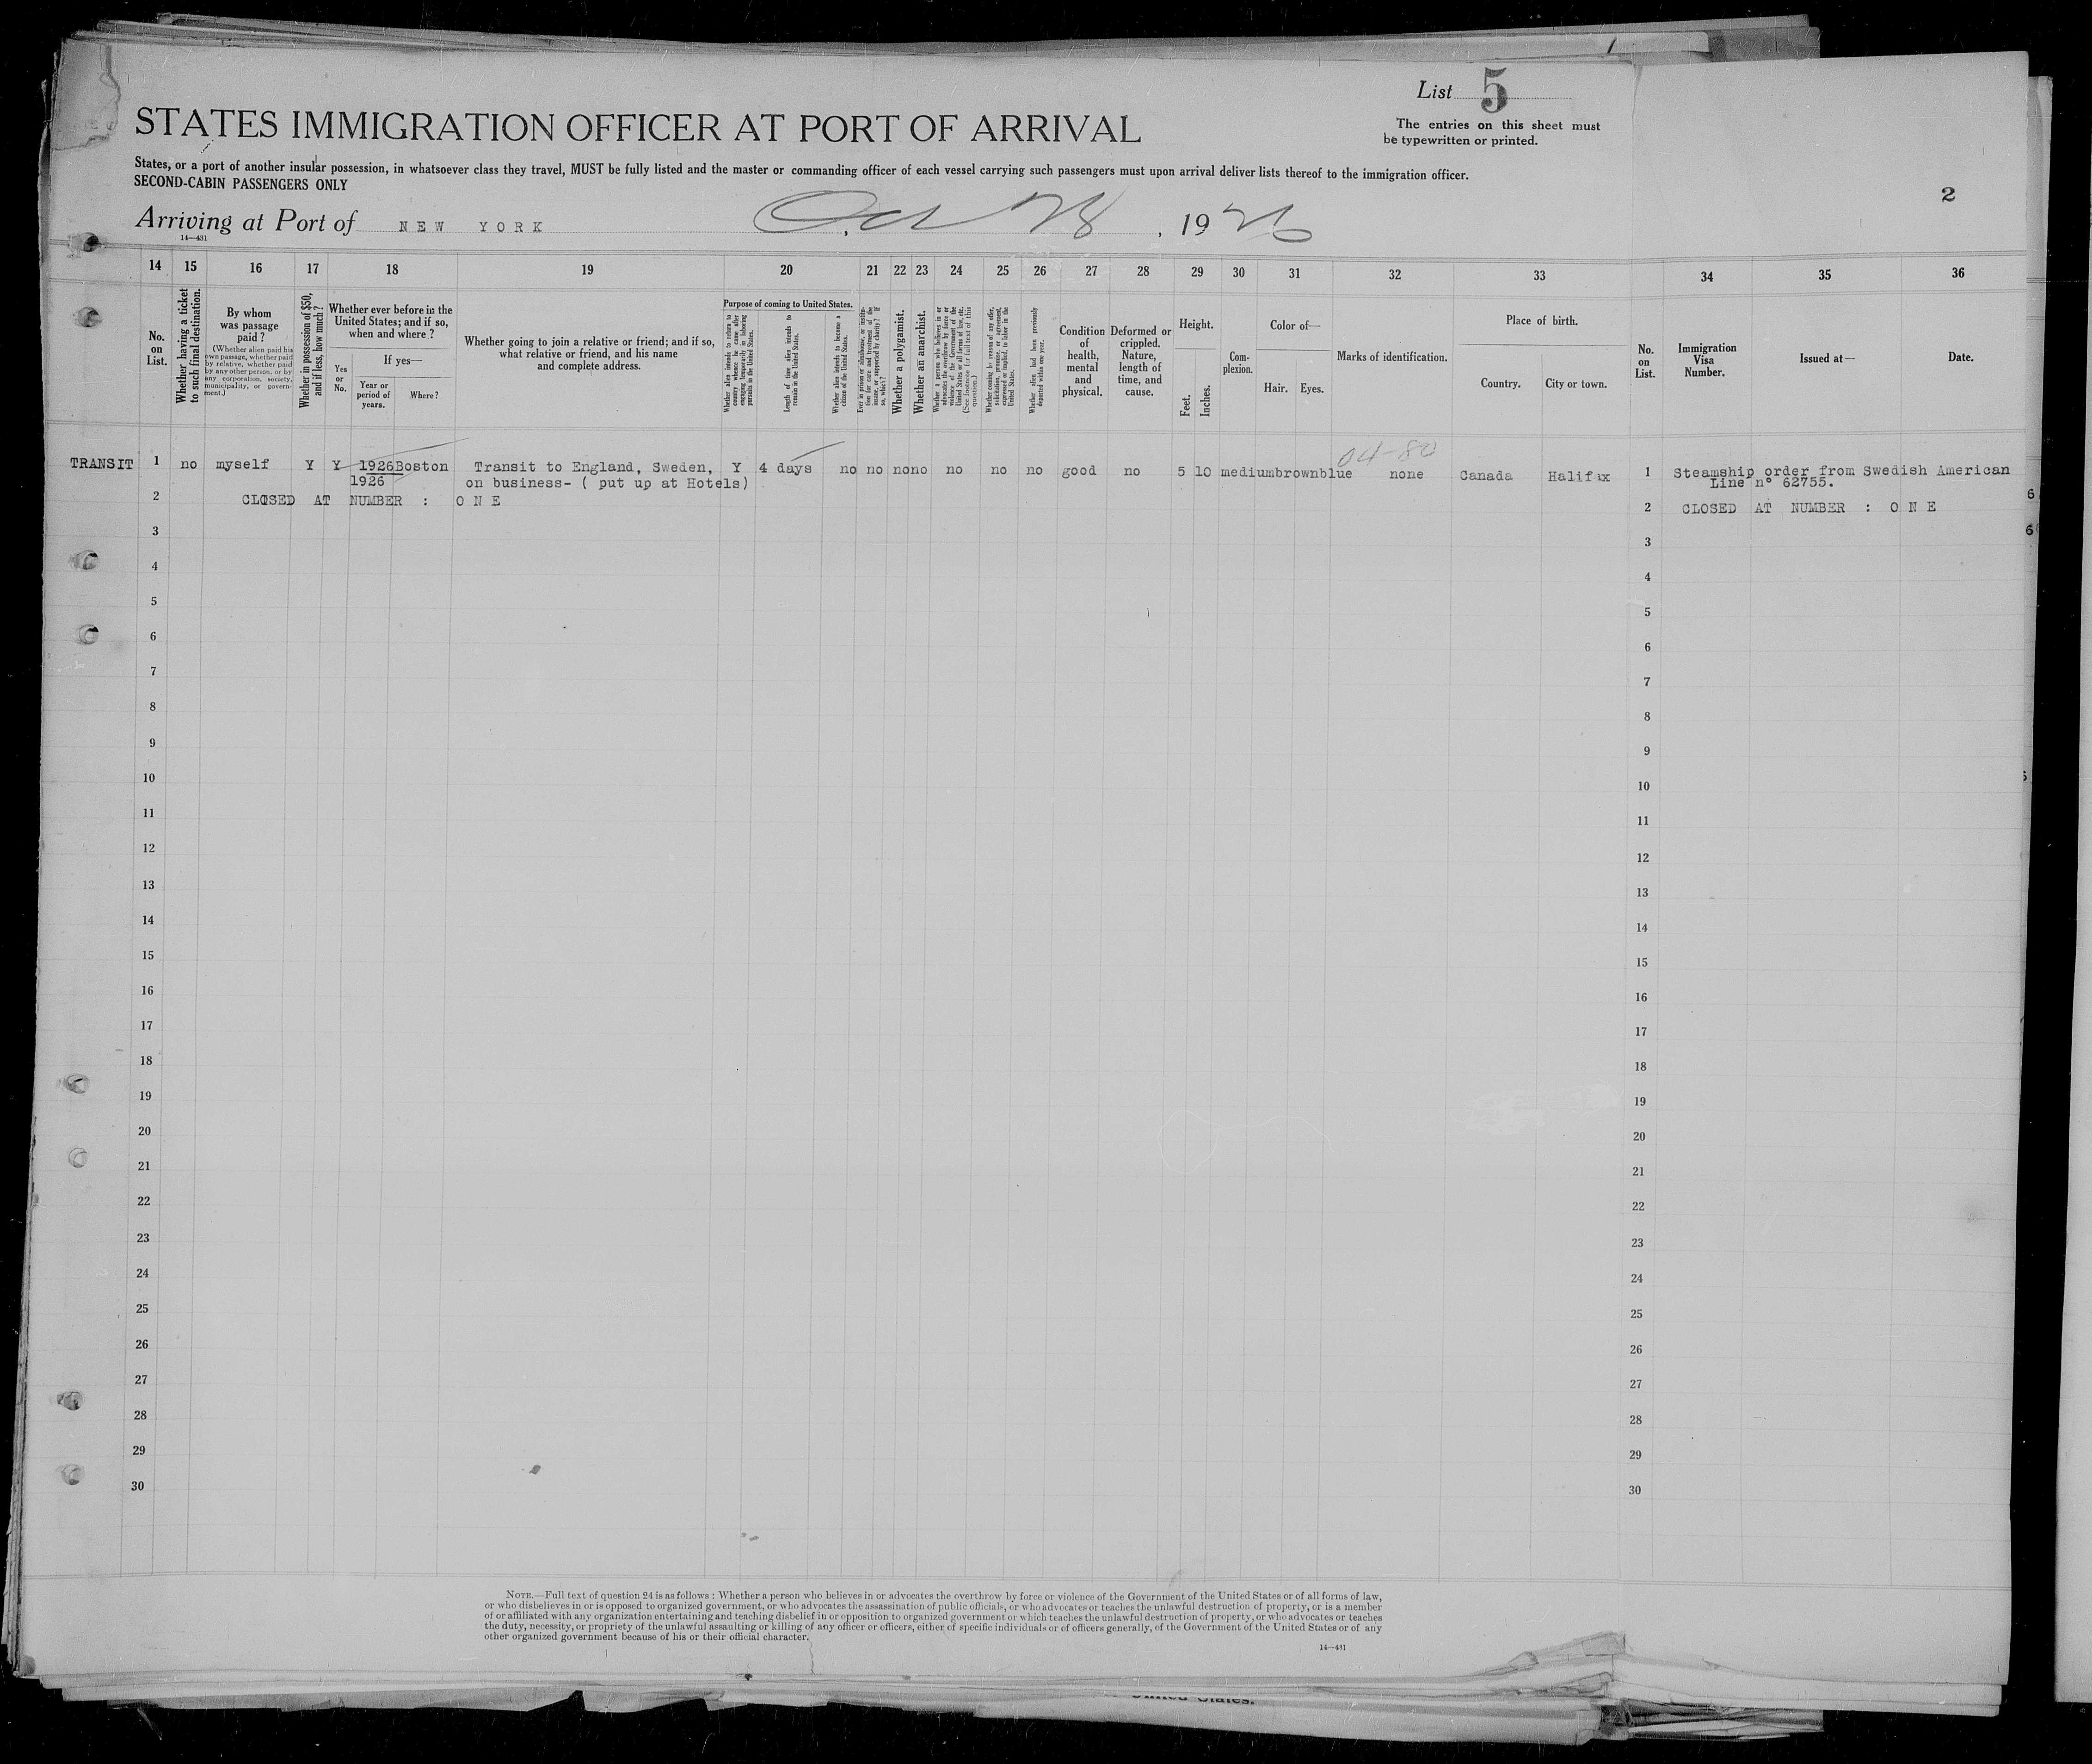 List 5
The entries on this sheet must
be typewritten or printed.
STATES IMMIGRATION OFFICER AT PORT OF ARRIVAL
States, or a port of another insular possession, in whatsoever class they travel, MUST be fully listed and the master or commanding officer of each vessel carrying such passengers must upon arrival deliver lists thereof to the immigration officer.
SECOND-CABIN PASSENGERS ONLY
2
Arriving at Port of NEW YORK, Oct 28, 1926
14—431
14 15 16 17 18 19 20 21 22 23 24 25 26 27 28 29 30 31 32 33 34 35 36
No. on List.
Whether having a ticket to such final destination.
By whom was passage paid?
(Whether alien paid his own passage, whether paid by relative, whether paid by any other person, or by any corporation, society, municipality, or government.)
Whether in possession of $50, and if less, how much?
Whether ever before in the United States; and if so, when and where?
Yes or No.
If yes—
Year or period of years.
Where?
Whether going to join a relative or friend; and if so, what relative or friend, and his name and complete address.
Purpose of coming to United States.
Whether alien intends to return to country whence he came after engaging temporarily in laboring pursuits in the United States.
Length of time alien intends to remain in the United States.
Whether alien intends to become a citizen of the United States.
Ever in prison or almshouse, or institution for care and treatment of the insane, or supported by charity? If so, which?
Whether a polygamist.
Whether an anarchist.
Whether a person who believes in or advocates the overthrow by force or violence of the Government of the United States or all forms of law, etc. (See footnote for full text of this question.)
Whether coming by reason of any offer, solicitation, promise, or agreement, expressed or implied, to labor in the United States.
Whether alien had been previously deported within one year.
Condition of health, mental and physical.
Deformed or crippled. Nature, length of time, and cause.
Height.
Feet. Inches.
Complexion.
Color of—
Hair. Eyes.
Marks of identification.
Place of birth.
Country. City or town.
No. on List.
Immigration Visa Number.
Issued at—
Date.
04-80
TRANSIT 1 no myself Y Y 1926 Boston Transit to England, Sweden, Y 4 days no no no no no no no good no 5 10 medium brown blue none Canada Halifax 1 Steamship order from Swedish American
1926 on business- ( put up at Hotels) Line n° 62755.
2 CLOSED AT NUMBER : O N E 2 CLOSED AT NUMBER : O N E
3 3
4 4
5 5
6 6
7 7
8 8
9 9
10 10
11 11
12 12
13 13
14 14
15 15
16 16
17 17
18 18
19 19
20 20
21 21
22 22
23 23
24 24
25 25
26 26
27 27
28 28
29 29
30 30
NOTE.—Full text of question 24 is as follows: Whether a person who believes in or advocates the overthrow by force or violence of the Government of the United States or of all forms of law,
or who disbelieves in or is opposed to organized government, or who advocates the assassination of public officials, or who advocates or teaches the unlawful destruction of property, or is a member
of or affiliated with any organization entertaining and teaching disbelief in or opposition to organized government or which teaches the unlawful destruction of property, or who advocates or teaches
the duty, necessity, or propriety of the unlawful assaulting or killing of any officer or officers, either of specific individuals or of officers generally, of the Government of the United States or of any
other organized government because of his or their official character.
14—431
United States.